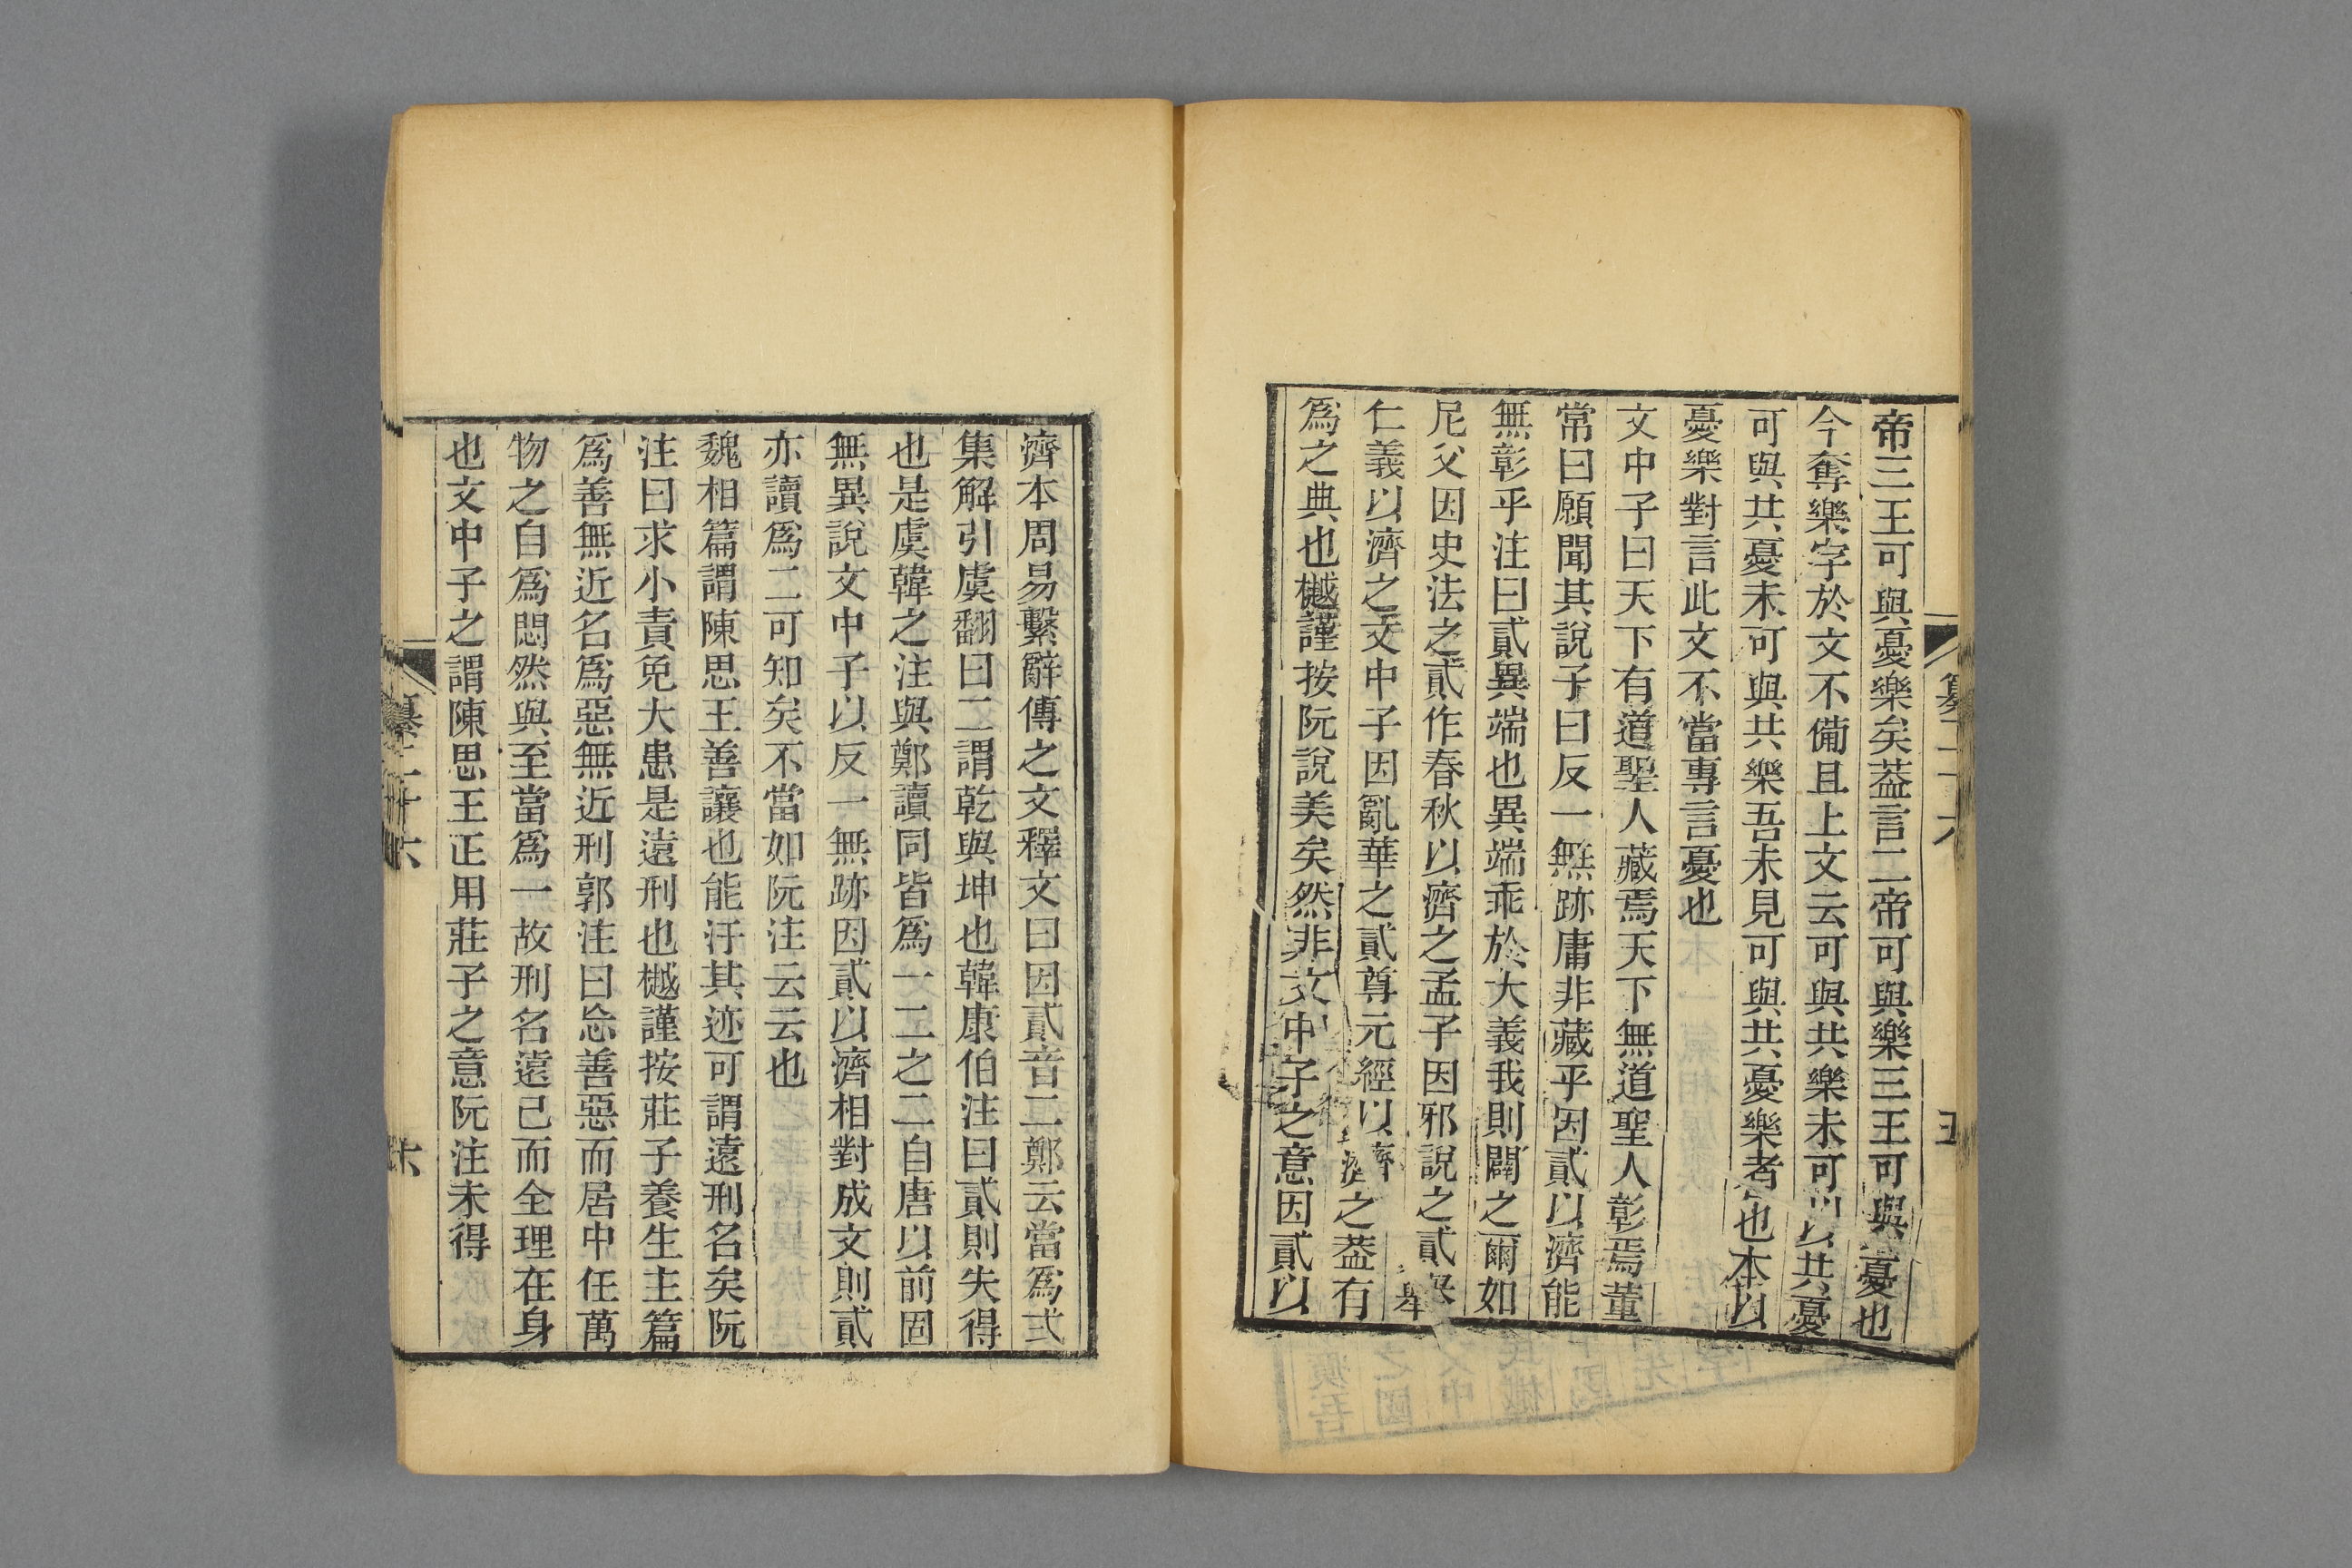 帝三王可與憂樂矣葢言二帝可與樂三王可與憂也
今奪樂字於文不備且上文云可與共樂未可以共憂
可與共憂未可與共樂吾未見可與共憂樂者也本以
憂樂對言此文不當專言憂也
文中子曰天下有道聖人藏焉天下無道聖人彰焉董
常曰願聞其說子曰反一無跡庸非藏乎因貳以濟能
無彰乎注曰貳異端也異端乖於大義我則闢之爾如
尼父因史法之貳作春秋以濟之孟子因邪說之貳舉
仁義以濟之文中子因亂華之貳尊元經以濟之葢有
爲之典也樾謹按阮說美矣然非文中子之意因貳以
纂二十六
五
濟本周易繫辭傳之文釋文曰因貳音二鄭云當爲弍
集解引虞翻曰二謂乾與坤也韓康伯注曰貳則失得
也是虞韓之注與鄭讀同皆爲一二之二自唐以前固
無異說文中子以反一無跡因貳以濟相對成文則貳
亦讀爲二可知矣不當如阮注云云也
魏相篇謂陳思王善讓也能汙其迹可謂遠刑名矣阮
注曰求小責免大患是遠刑也樾謹按莊子養生主篇
爲善無近名爲惡無近刑郭注曰忘善惡而居中任萬
物之自爲悶然與至當爲一故刑名遠己而全理在身
也文中子之謂陳思王正用莊子之意阮注未得
纂二十六
六